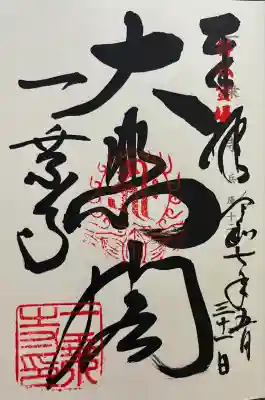 奉拝
令和七年五月
三十一日
大悲閣
一乗寺